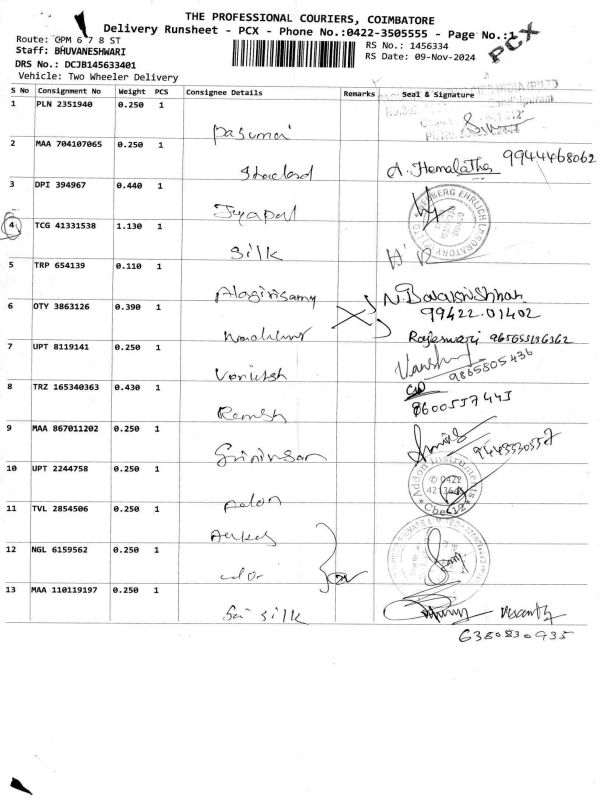 THE PROFESSIONAL COURIERS, COIMBATORE
Delivery Runsheet - PCX - Phone No.:0422-3505555 - Page No.:1
PCX
Route: GPM 6 7 8 ST
RS No.: 1456334
Staff: BHUVANESHWARI
RS Date: 09-Nov-2024
DRS No.: DCJB145633401
Vehicle: Two Wheeler Delivery
S No Consignment No Weight PCS Consignee Details Remarks Seal & Signature
1 PLN 2351940 0.250 1
2 MAA 704107065 0.250 1 A. Hemalatha 9944468062
3 DPI 394967 0.440 1 Jyapal
4 TCG 41331538 1.130 1 Silk
5 TRP 654139 0.110 1 Alagirisamy N. Balakrishnan
99422.01402
6 OTY 3863126 0.390 1 Rajeswari 965655136362
7 UPT 8119141 0.250 1 9865805436
8 TRZ 165340363 0.430 1 Ramesh 8600557445
9 MAA 867011202 0.250 1 Srinivasan 9443330557
10 UPT 2244758 0.250 1 Adon Addon Instruments
11 TVL 2854506 0.250 1
12 NGL 6159562 0.250 1 do
13 MAA 110119197 0.250 1 Sai silk
6380830935